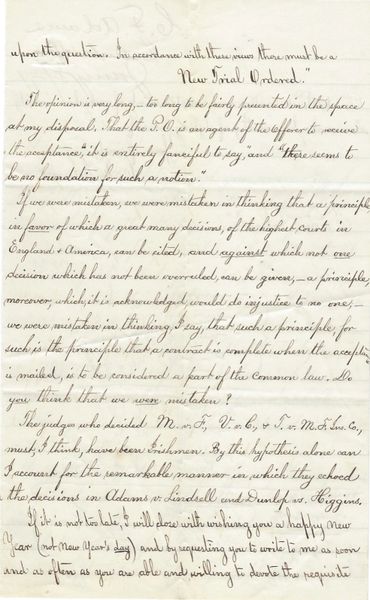 upon the question. In accordance with these views there must be a
New Trial Ordered."
The opinion is very long,—too long to be fairly presented in the space
at my disposal. That the P.O. is an agent of the Offerer to receive
the acceptance, "it is entirely fanciful to say," and "there seems to
be no foundation for such a notion."
If we were mistaken, we were mistaken in thinking that a principle
in favor of which a great many decisions, of the highest courts in
England & America, can be cited, and against which not one
decision which has not been overruled, can be given,—a principle,
moreover, which, it is acknowledged, would do injustice to no one,—
we were mistaken in thinking, I say, that such a principle for
such is the principle that a contract is complete when the acceptance
is mailed, is to be considered a part of the common law. Do
you think that we were mistaken?
The judge who decided M. v. F., V. v. C., & T. v. M. F. Ins. Co.,
must, I think, have been Irishmen. By this hypothesis alone can
I account for the remarkable manner in which they echoed
the decisions in Adams v. Lindsell and Dunlop vs. Higgins.
If it is not too late, I will close with wishing you a happy new
Year (not New Year's day) and by requesting you to write to me as soon
and as often as you are able and willing to devote the requisite